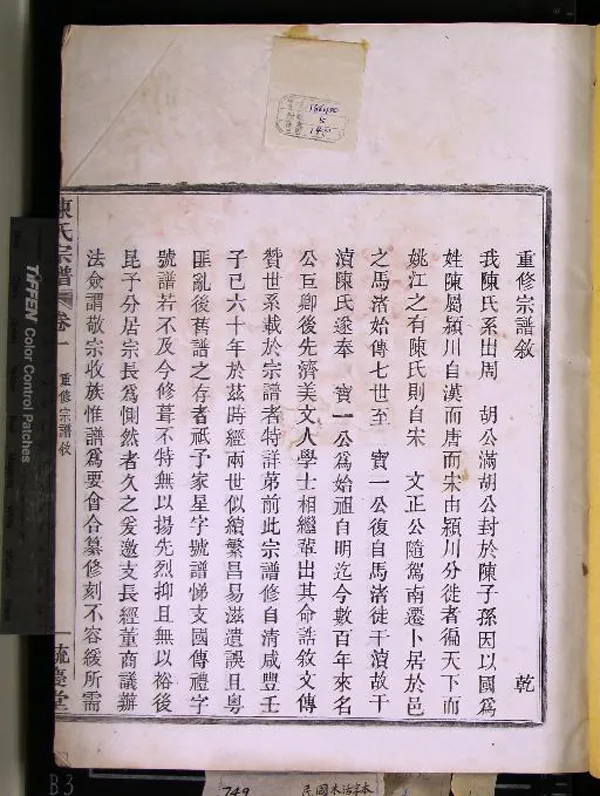 重修宗譜敘 乾
我陳氏系出周 胡公滿胡公封於陳子孫因以國爲
姓陳屬潁川自漢而唐而宋由潁川分徙者徧天下而
姚江之有陳氏則自宋 文正公隨駕南遷卜居於邑
之馬渚始傳七世至 寶一公復自馬渚徒干瀆故干
瀆陳氏遂奉 寶一公爲始祖自明迄今數百年來名
公巨卿後先濟美文人學士相繼輩出其命誥敘文傳
贊世系載於宗譜者特詳苐前此宗譜修自清咸豐壬
子已六十年於茲時經兩世似續繁昌易滋遺誤且粵
匪亂後舊譜之存者祇予家星字號譜悌支國傳禮字
號譜若不及今修葺不特無以揚先烈抑且無以裕後
昆予分居宗長爲惻然者久之爰邀支長經董商議辦
法僉謂敬宗收族惟譜爲要會合纂修刻不容緩所需
陳氏宗譜 卷一 重修宗譜敘 一 毓慶堂
TIFFEN Color Control Patches
B3
749
民國木活字本